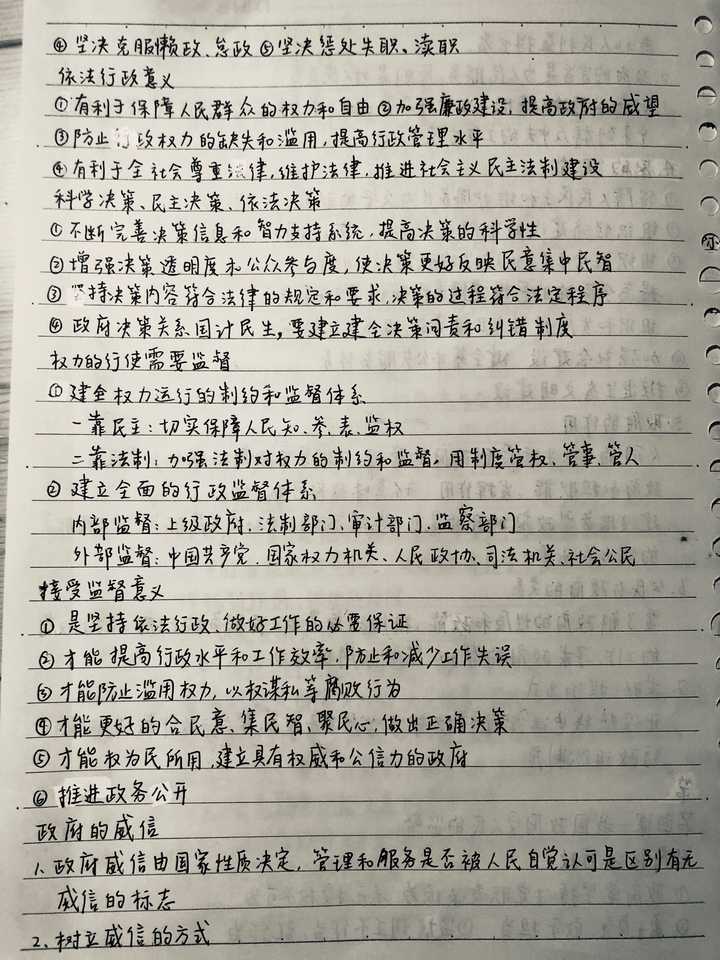 ④坚决克服懒政、怠政⑤坚决惩处失职、渎职
依法行政意义
①有利于保障人民群众的权力和自由②加强廉政建设,提高政府的威望
③防止行政权力的缺失和滥用,提高行政管理水平
④有利于全社会尊重法律,维护法律,推进社会主义民主法制建设
科学决策、民主决策、依法决策
①不断完善决策信息和智力支持系统,提高决策的科学性
②增强决策透明度和公众参与度,使决策更好反映民意集中民智
③坚持决策内容符合法律的规定和要求,决策的过程符合法定程序
④政府决策关系国计民生,要建立建全决策问责和纠错制度
权力的行使需要监督
①建全权力运行的制约和监督体系
一靠民主:切实保障人民知、参、表、监权
二靠法制:加强法制对权力的制约和监督,用制度管权、管事、管人
②建立全面的行政监督体系
内部监督:上级政府、法制部门、审计部门、监察部门
外部监督:中国共产党、国家权力机关、人民政协、司法机关、社会公民
接受监督意义
①是坚持依法行政、做好工作的必要保证
②才能提高行政水平和工作效率,防止和减少工作失误
③才能防止滥用权力,以权谋私等腐败行为
④才能更好的合民意、集民智、聚民心,做出正确决策
⑤才能权为民所用,建立具有权威和公信力的政府
⑥推进政务公开
政府的威信
1、政府威信由国家性质决定,管理和服务是否被人民自觉认可是区别有无
威信的标志
2、树立威信的方式